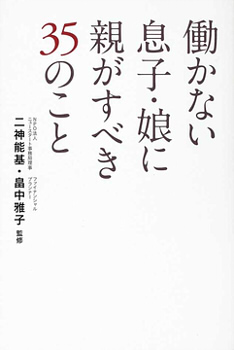 働かない
息子・娘に
親がすべき
35のこと
NPO法人
ニュースタート事務局理事
二神能基・
ファイナンシャル
プランナー
畠中雅子
監修